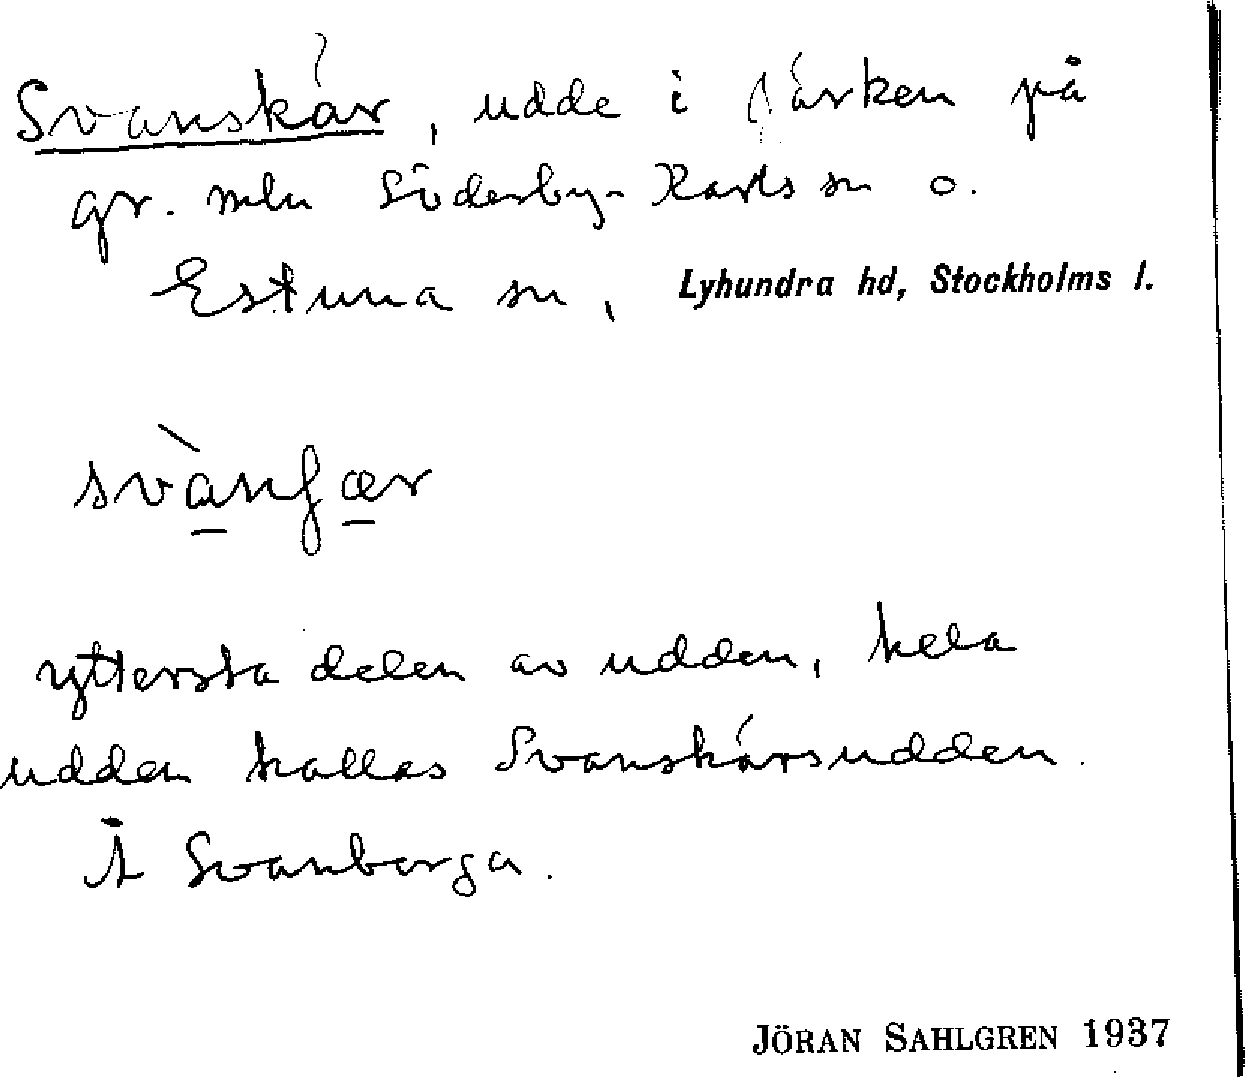 Svanskär, udde i Närken på
gr. mln Söderby-Karls sn o.
Estuna sn, Lyhundra hd, Stockholms l.
svànʃær
yttersta delen av udden, hela
udden kallas Svanskärsudden.
Å Svanberga.
JÖRAN SAHLGREN 1937